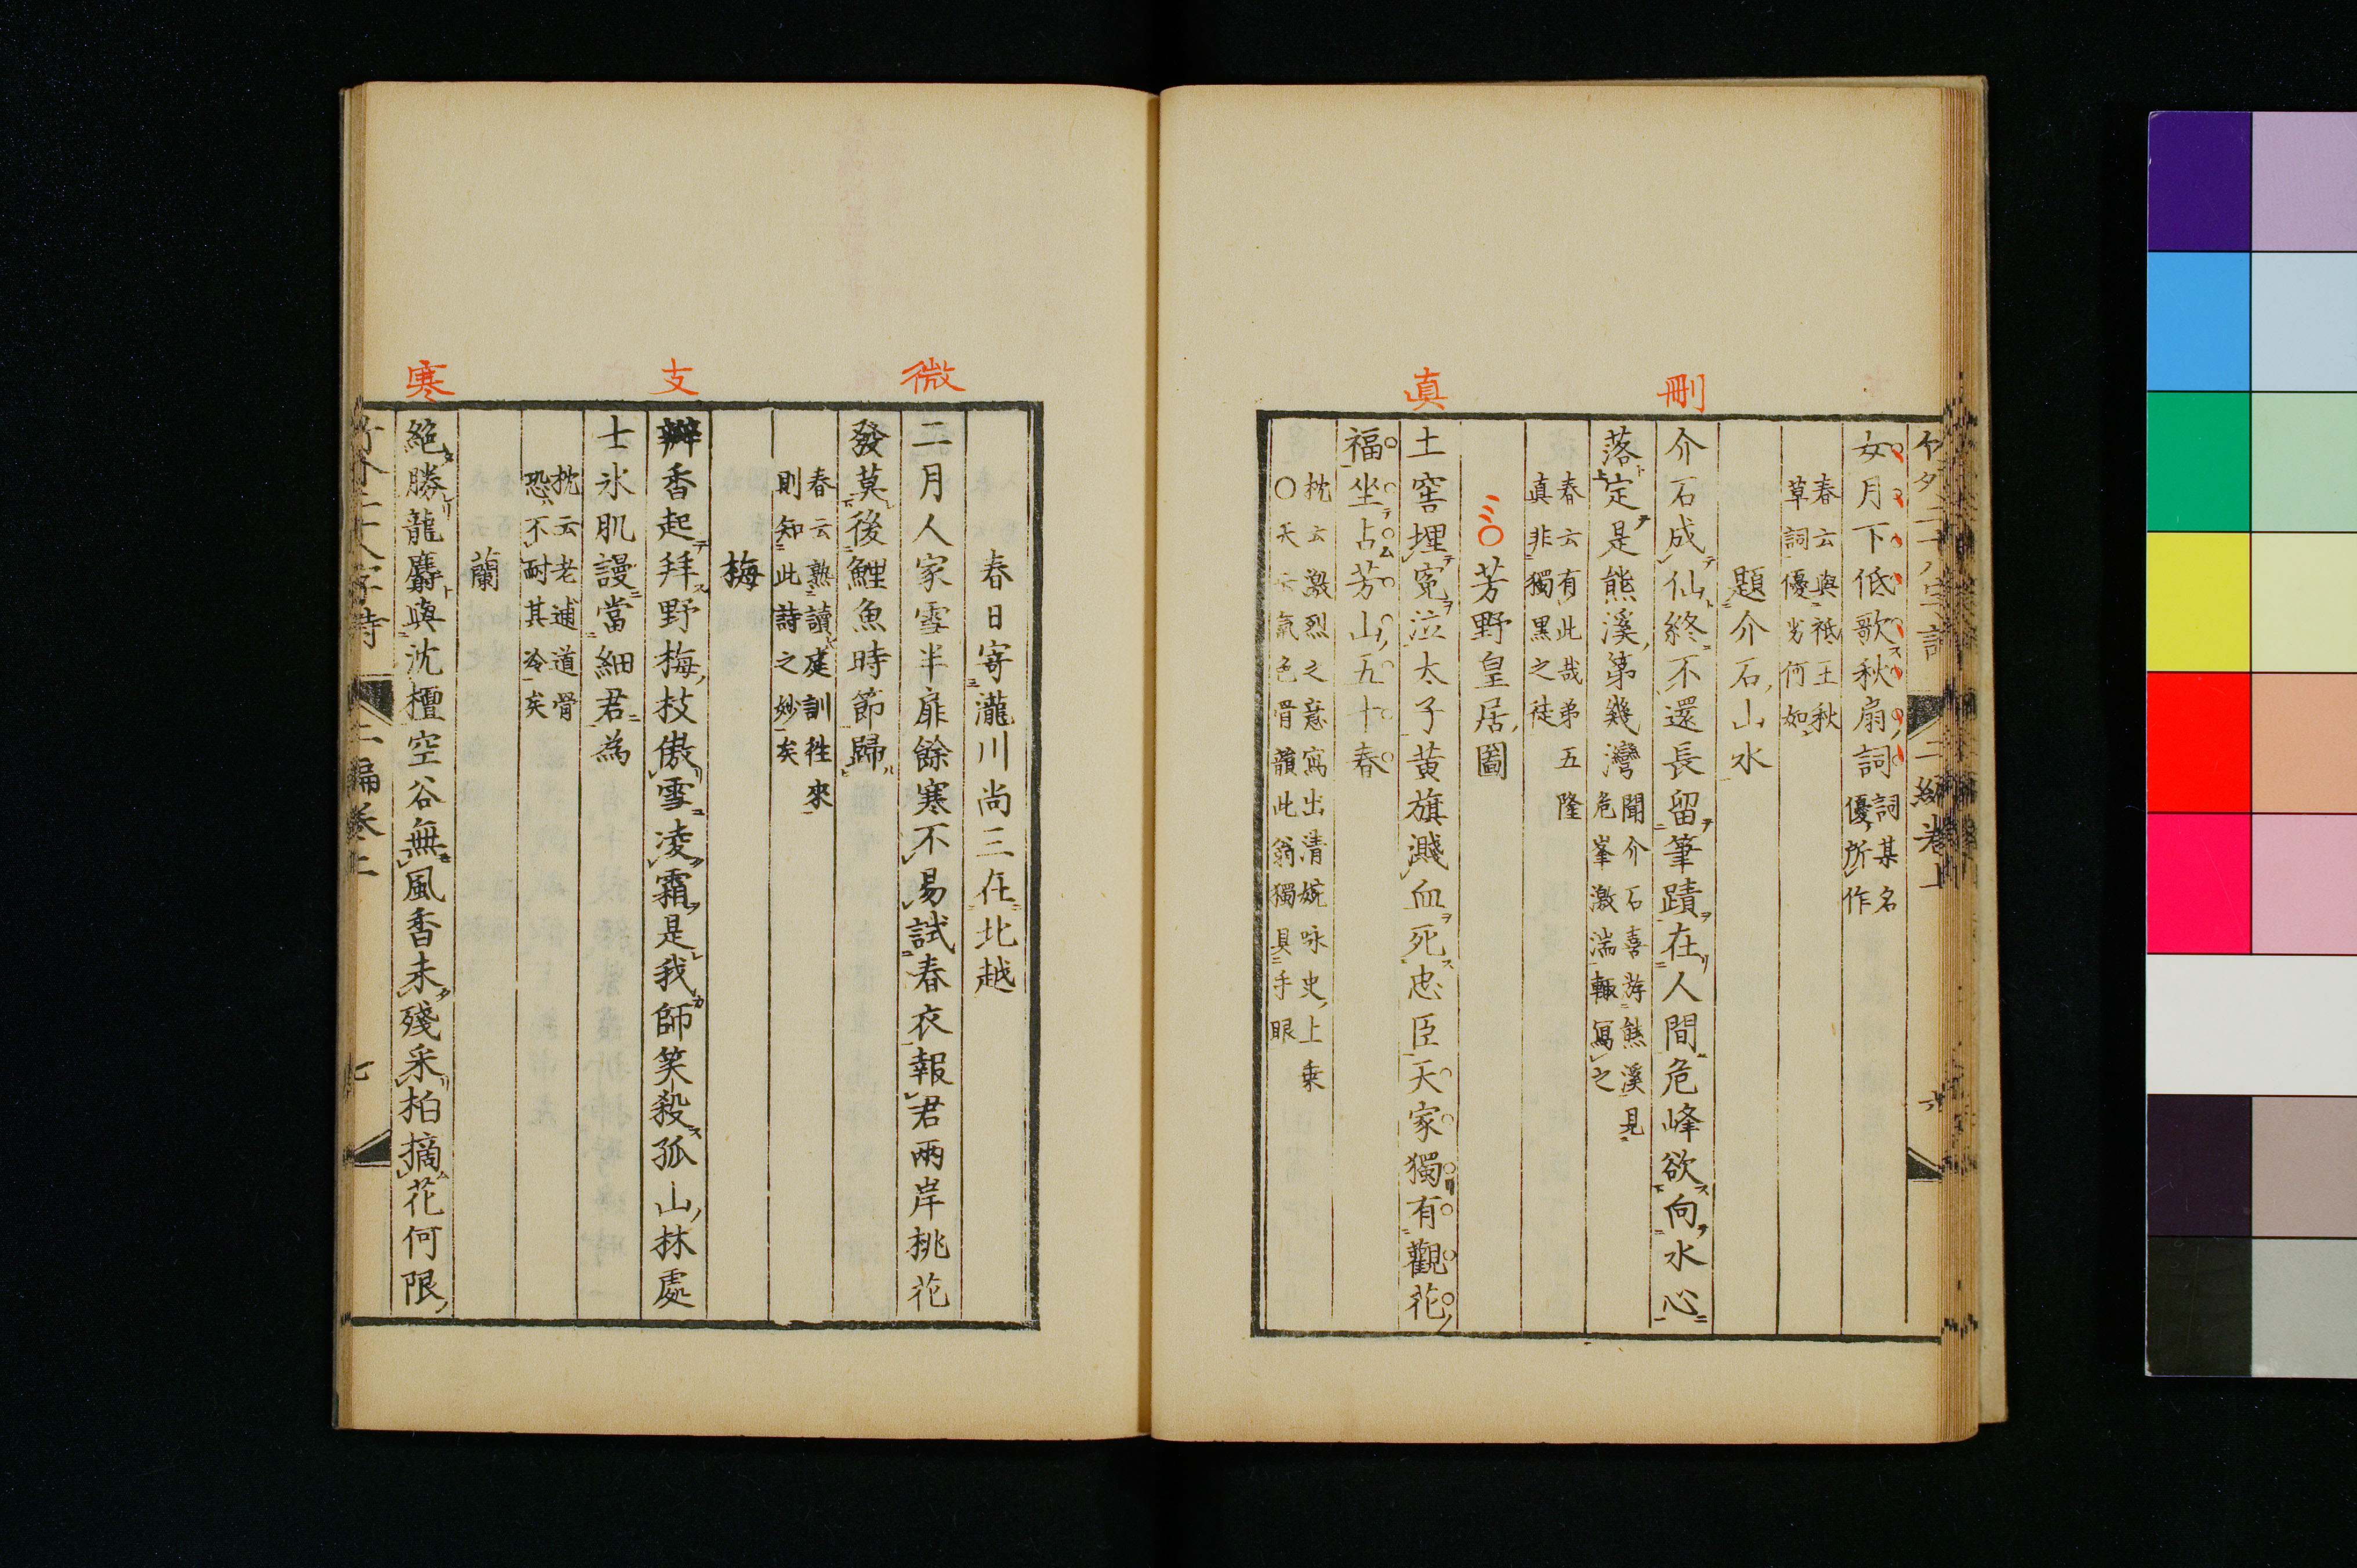 刪
真
女月下低歌秋扇詞 詞某名
優所作
春云與祗王秋
草詞優劣何如
題介石山水
介石成仙終不還長留筆蹟在人間危峰欲向水心
落定是熊溪第幾灣 聞介石喜游熊溪見
危峯激湍輙寫之
春云有此哉弟五隆
真非獨黑之徒
芳野皇居圖
土窖埋寃泣太子黄旗濺血死忠臣天家獨有觀花
福坐占芳山五十春
枕云激烈之意寓出清婉咏史上乗
○天云氣色骨韻此翁獨具手眼
微
支
寒
春日寄瀧川尚三在北越
二月人家雪半扉餘寒不易試春衣報君兩岸桃花
發莫後鯉魚時節歸
春云熟讀庭訓徃來
則知此詩之妙矣
梅
瓣香起拜野梅枝傲雪凌霜是我師笑殺孤山林處
士氷肌謾當細君為
枕云老逋道骨
恐不耐其冷矣
蘭
絶勝龍麝與沈檀空谷無風香未殘采拍摘花何限
二編卷上
七